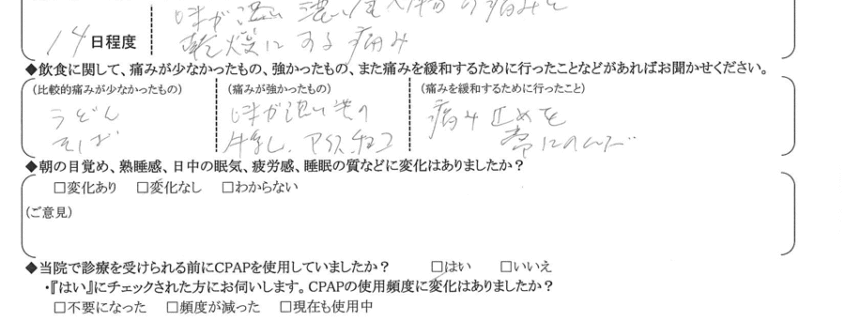 味が濃い 濃い食べ物の痛みと
14日程度 乾燥による痛み
◆飲食に関して、痛みが少なかったもの、強かったもの、また痛みを緩和するために行ったことなどがあればお聞かせください。
(比較的痛みが少なかったもの) (痛みが強かったもの) (痛みを緩和するために行ったこと)
うどん 味が濃いもの 痛み止めを
そば 牛乳、アイス、チョコ 常にのんだ
◆朝の目覚め、熟睡感、日中の眠気、疲労感、睡眠の質などに変化はありましたか？
□変化あり □変化なし □わからない
(ご意見)
◆当院で診療を受けられる前にCPAPを使用していましたか？ □はい □いいえ
・『はい』にチェックされた方にお伺いします。CPAPの使用頻度に変化はありましたか？
□不要になった □頻度が減った □現在も使用中